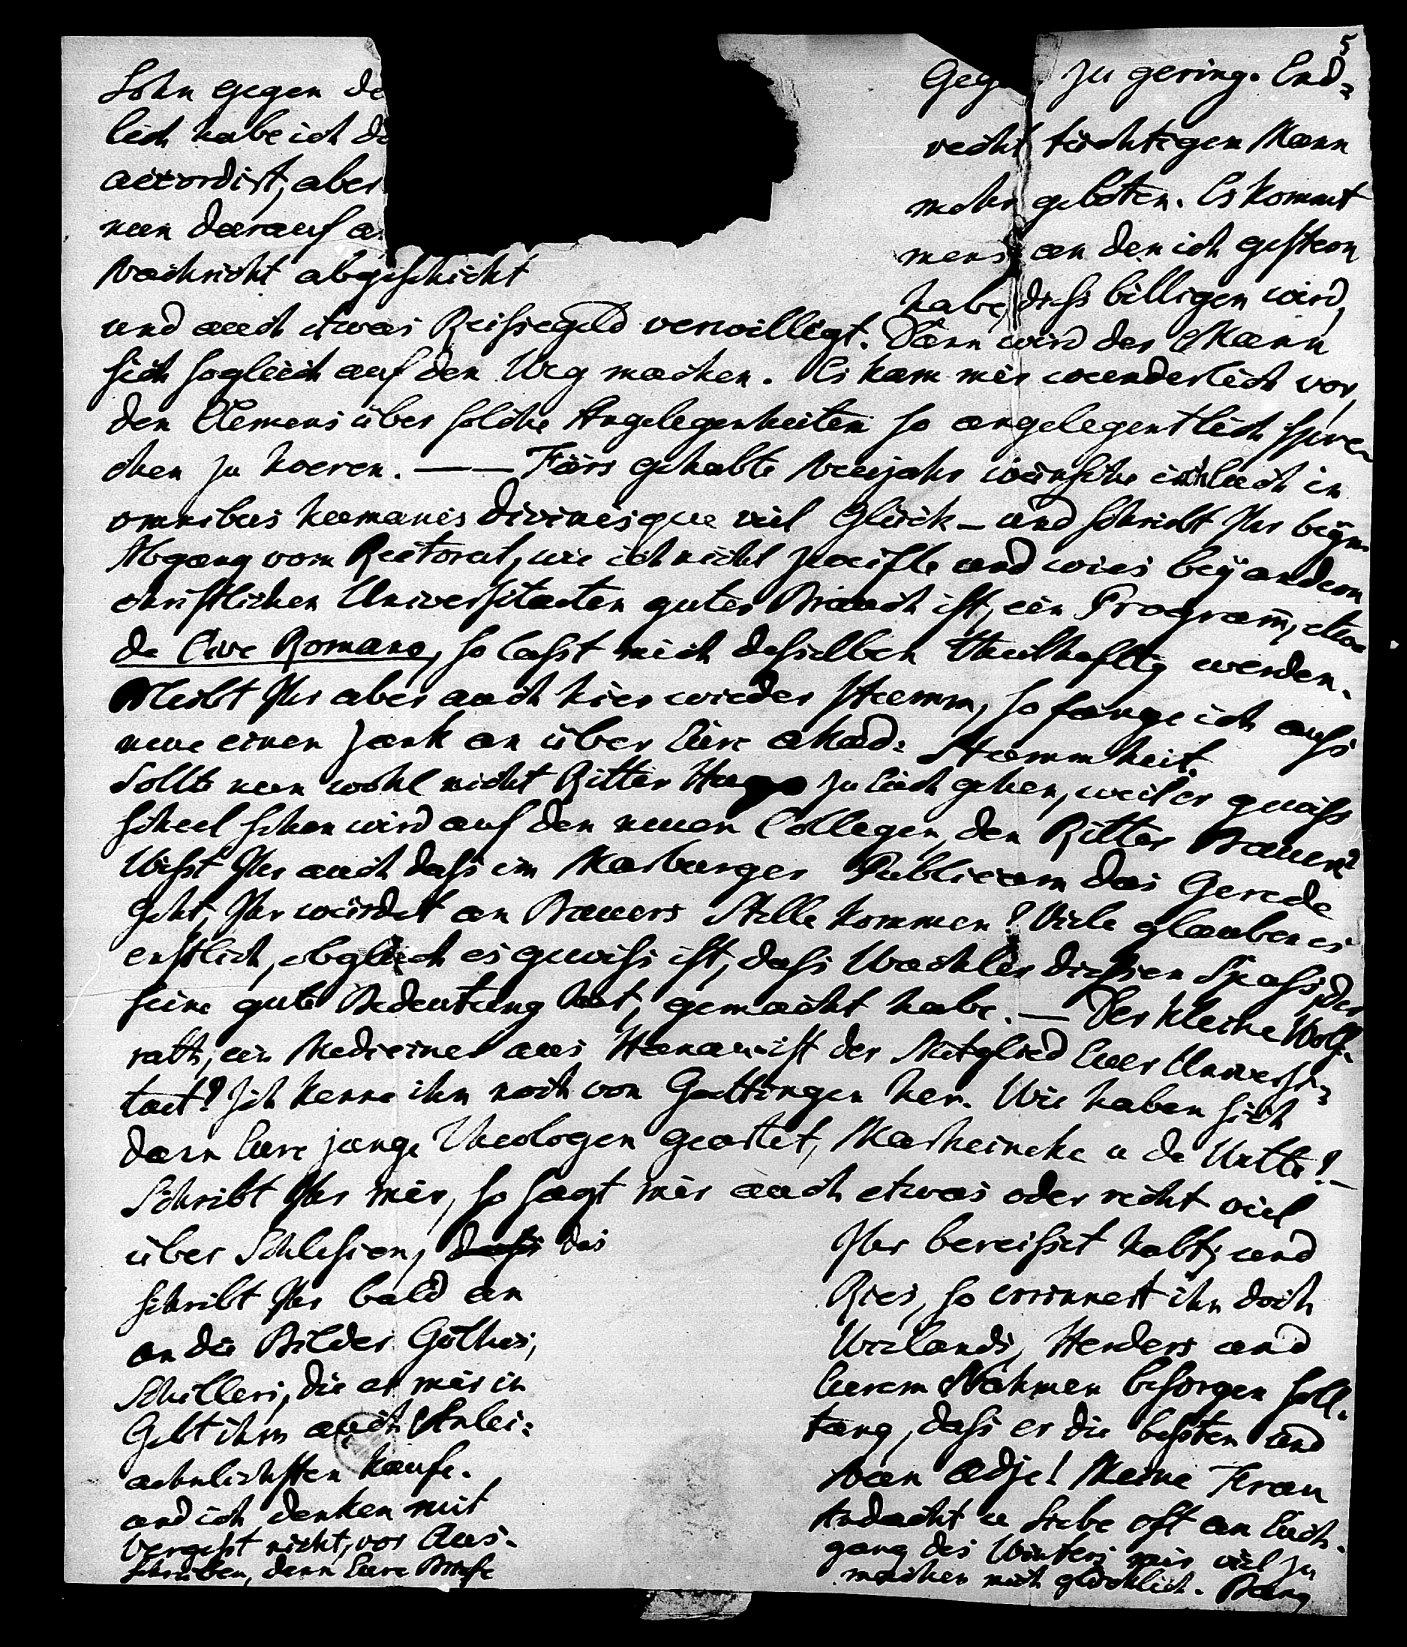 5
Lohn gegen de Gege zu gering. End-
lich habe ich di recht tüchtigen Mann
accordirt, aber mehr geboten. Es kommt
nun darauf a mens an den ich gestern
Nachricht abgeschickt habe, dieß billigen wird,
und auch etwas Reissegeld verwilligt. Dann wird der Mann
sich sogleich auf den Weg machen. Es kam mir wunderlich vor,
den Clemens über solche Angelegenheiten so angelegentlich spre-
chen zu hoeren. — — Fürs gehabte Neujahr wünsche ich Euch in
omnibus humanis divinisque viel Glück – und schreibt Ihr beym
Abgang vom Rectorat, wie ich nicht zweifle und wies bey andern
christlichen Universitaeten guter Brauch ist, ein Programm, etwa
de Cive Romano, so lasst mich desselben theilhaftig werden.
Bleibt Ihr aber auch hier wieder stumm, so fange ich aufs
neue einen Zank an über Eure akad: Stummheit.
Sollte nun wohl nicht Ritter Hugo zu Euch gehen, weil er gewiss
scheel sehen wird auf den neuen Collegen, den Ritter Bauer?
Wisst Ihr auch dass im Marburger Publicum das Gerede
geht, Ihr würdet an Bauers Stelle kommen? Viele glauben es
ernstlich, obgleich es gewiss ist, dass Wachler diessen Spass, der
seine gute Bedeutung hat, gemacht habe. — Der kleine Wolf-
rath, ein Mediciner aus Hanau ist der Mitglied Euer Universi-
taet? Ich kenne ihn noch von Goettingen her. Wie haben sich
dann Eure junge Theologen geartet, Marheineke u de Wette? –
Schreibt Ihr mir, so sagt mir auch etwas oder recht viel
über Schlesien, das Ihr bereisset habt; und
schreibt Ihr bald an Ries, so erinnert ihn doch
an die Bilder Göthes, Wielands, Herders und
Schillers, die er mir in Eurem Nahmen besorgen soll.
Gebt ihm auch Anlei- tung, dass er die besten und
aehnlichsten kaufe. Nun adje! Meine Frau
und ich denken mit Andacht u Liebe oft an Euch.
Vergesst nicht, vor Aus- gang des Winters mir viel zu
schreiben, denn Eure Briefe machen mich glücklich. Bang